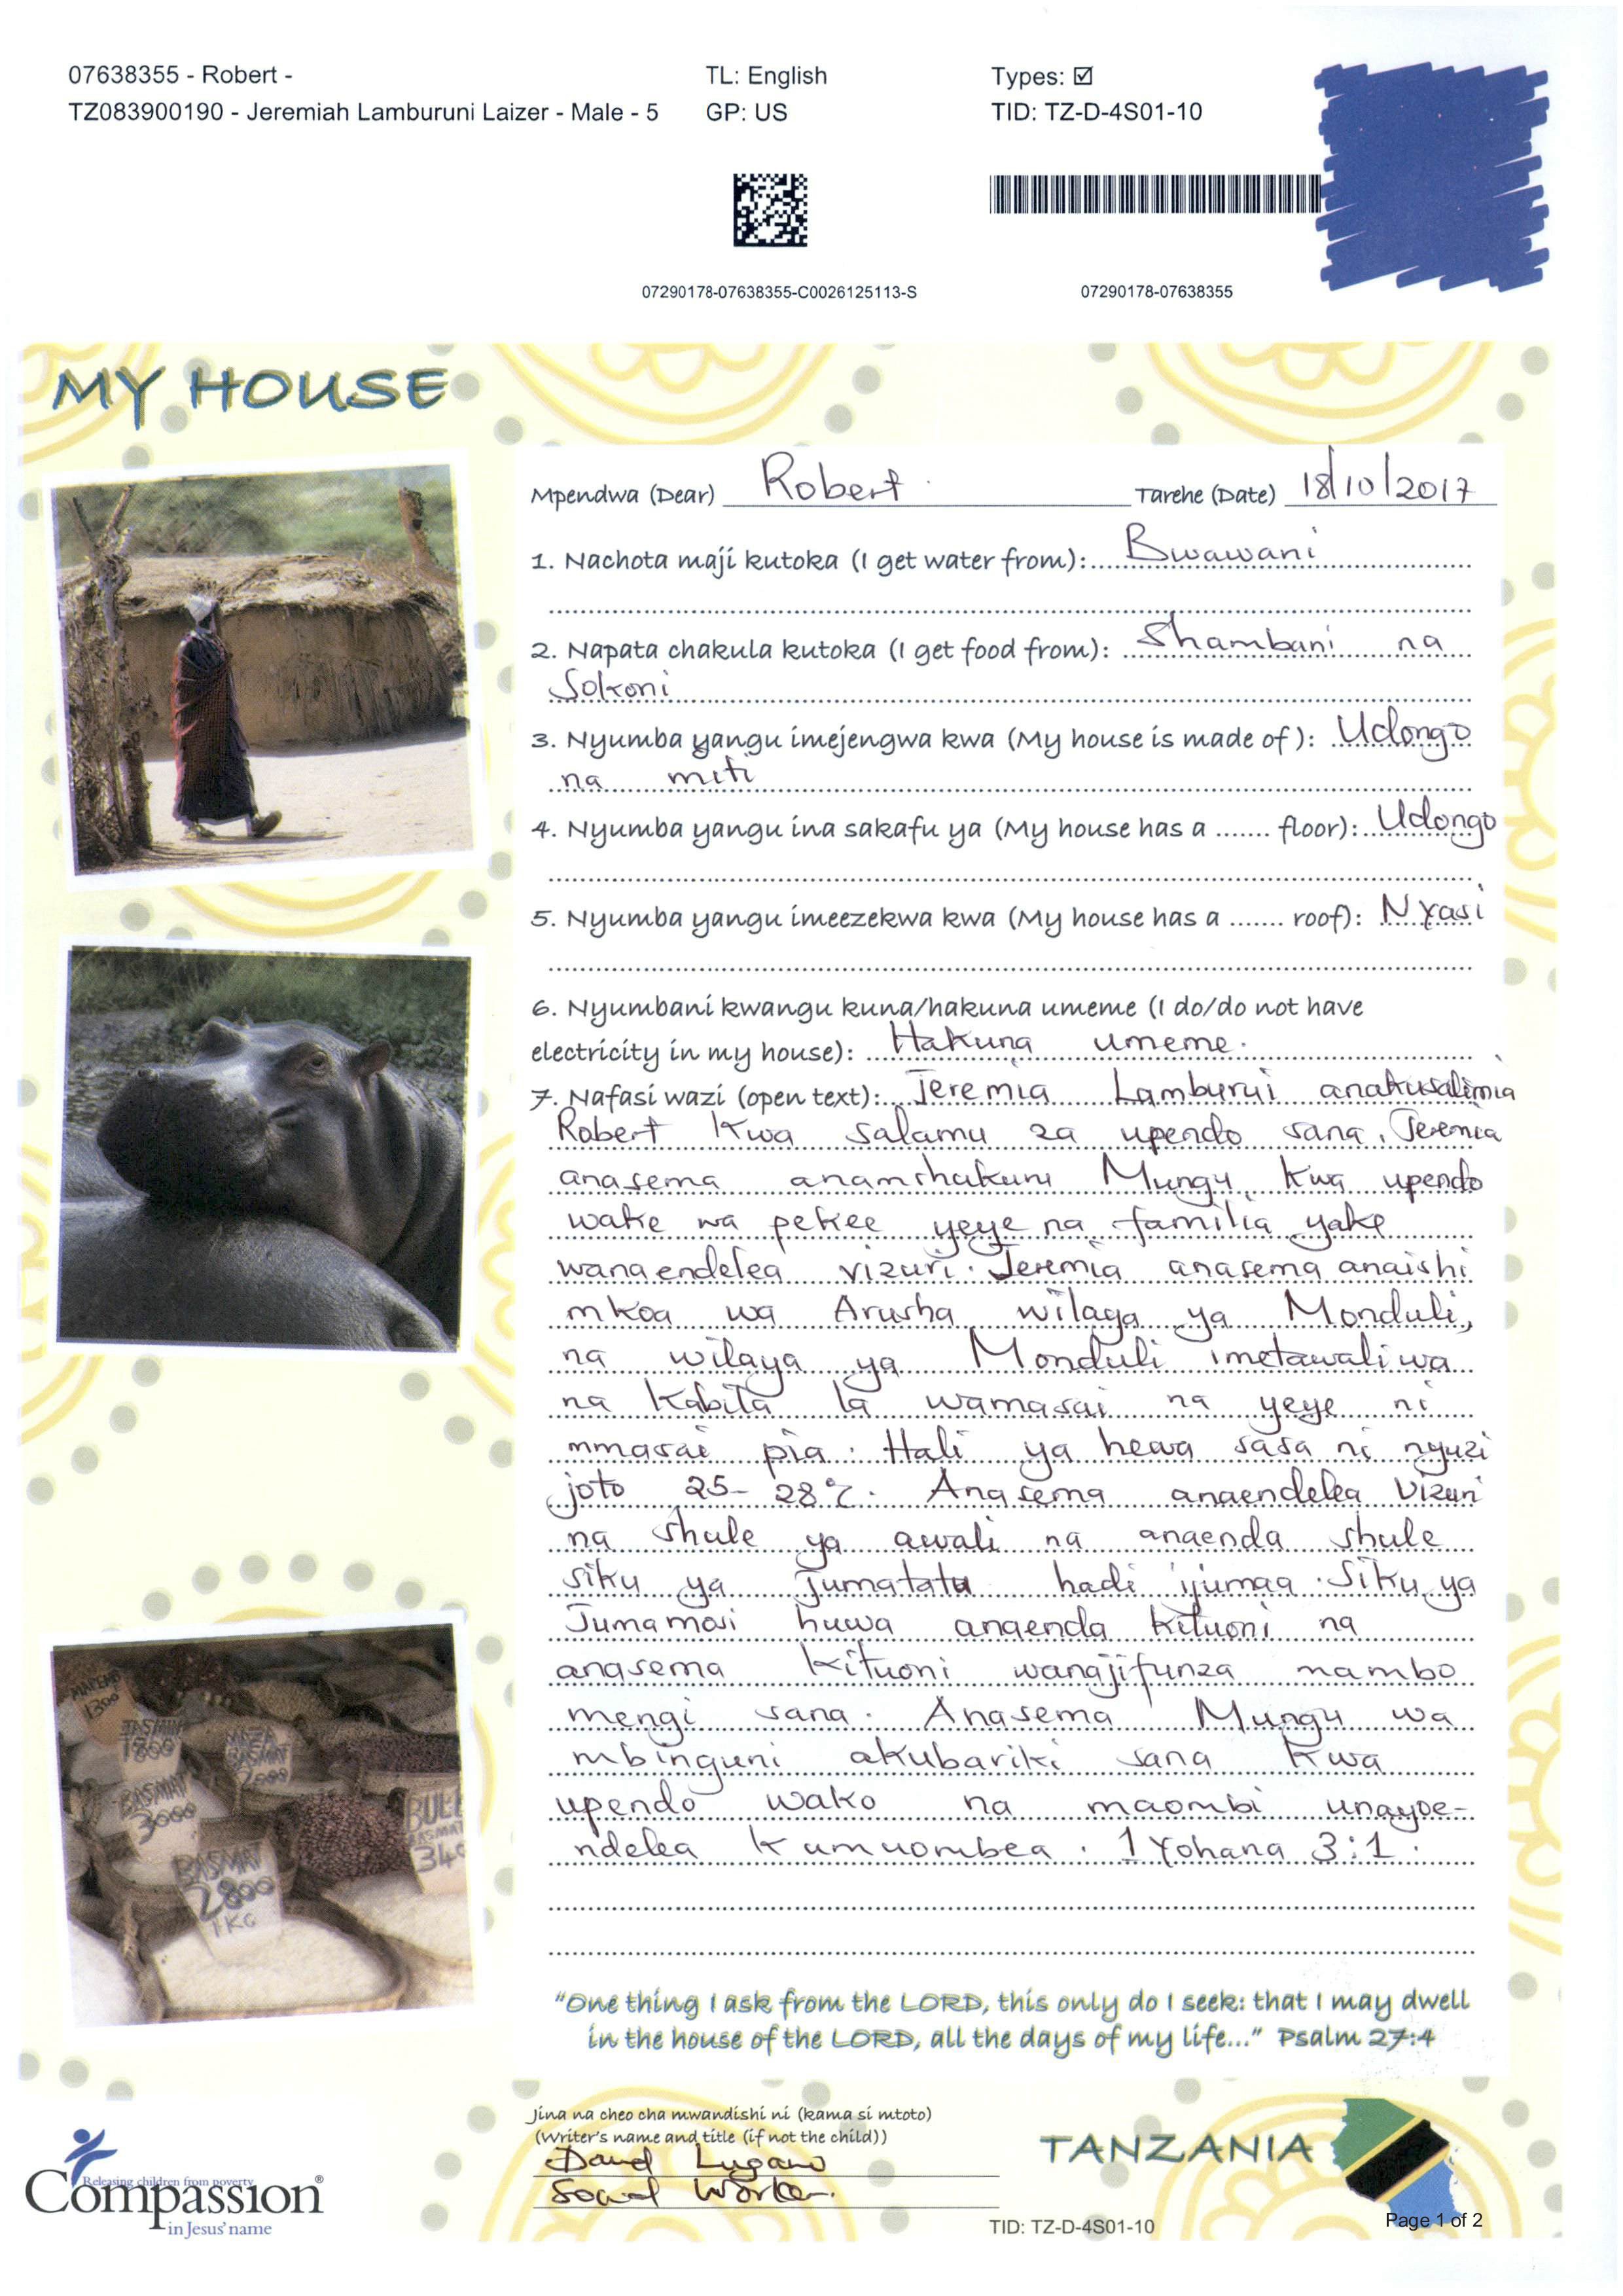 07638355 - Robert -
TL: English
Types: ☑
TZ083900190 - Jeremiah Lamburuni Laizer - Male - 5
GP: US
TID: TZ-D-4S01-10
07290178-07638355-C0026125113-S
07290178-07638355
MY HOUSE
Mpendwa (Dear) Robert Tarehe (Date) 18/10/2017
1. Nachota maji kutoka (I get water from): Bwawani
2. Napata chakula kutoka (I get food from): Shambani na
Sokoni
3. Nyumba yangu imejengwa kwa (My house is made of ): Udongo
na miti
4. Nyumba yangu ina sakafu ya (My house has a ....... floor): Udongo
5. Nyumba yangu imeezekwa kwa (My house has a ....... roof): Nyasi
6. Nyumbani kwangu kuna/hakuna umeme (I do/do not have
electricity in my house): Hakuna umeme.
7. Nafasi wazi (open text): Jeremia Lamburui anakusalimia
Robert Kwa salamu za upendo sana, Jeremia
anasema anamshukuru Mungu, kwa upendo
wake wa pekee yeye na familia yake
wanaendelea vizuri. Jeremia anasema anaishi
mkoa wa Arusha wilaya ya Monduli,
na wilaya ya Monduli imetawaliwa
na kabila la wamasai na yeye ni
mmasai pia. Hali ya hewa sasa ni nyuzi
joto 25-28°C. Anasema anaendelea vizuri
na shule ya awali na anaenda shule
siku ya Jumatatu hadi ijumaa. Siku ya
Jumamosi huwa anaenda kituoni na
anasema kituoni wanajifunza mambo
mengi sana. Anasema Mungu wa
mbinguni akubariki sana kwa
upendo wako na maombi unayoe-
ndelea kumuombea. 1 Yohana 3:1.
"One thing I ask from the LORD, this only do I seek: that I may dwell
in the house of the LORD, all the days of my life..." Psalm 27:4
Jina na cheo cha mwandishi ni (kama si mtoto)
(Writer's name and title (if not the child))
David Lugano
Social Worker.
TANZANIA
Releasing children from poverty
Compassion®
in Jesus' name
TID: TZ-D-4S01-10
Page 1 of 2
1300
JASMIN
1800
BASMAT
BASMAT
3000
BASMAT
2800
1KG